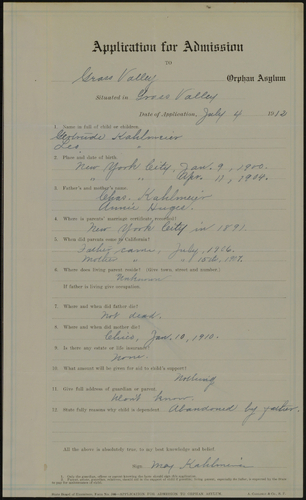 Application for Admission
TO
Grass Valley Orphan Asylum
Situated in Grass Valley
Date of Application, July 4 191
1. Name in full of child or children.
Gertrude Kahlmeier
Leo "
2. Place and date of birth.
New York City, Jan. 9, 1900.
" " " Apr. 11, 1904.
3. Father's and mother's name.
Chas. Kahlmeier
Annie
4. Where is parents' marriage certificate recorded?
New York City in 1891.
5. When did parents come to California?
Father came, July,
Mother " Oct.
6. Where does living parent reside? (Give town, street and number.)
Unknown
If father is living give occupation.
7. Where and when did father die?
Not dead.
8. Where and when did mother die?
Chico, Jan. 10, 1910.
9. Is there any estate or life insurance?
None.
10. What amount will be given for aid to child's support?
Nothing
11. Give full address of guardian or parent.
Don't know.
12. State fully reasons why child is dependent. Abandoned by father.
All the above is absolutely true, to my best knowledge and belief.
Sign, Max Kahlmeier